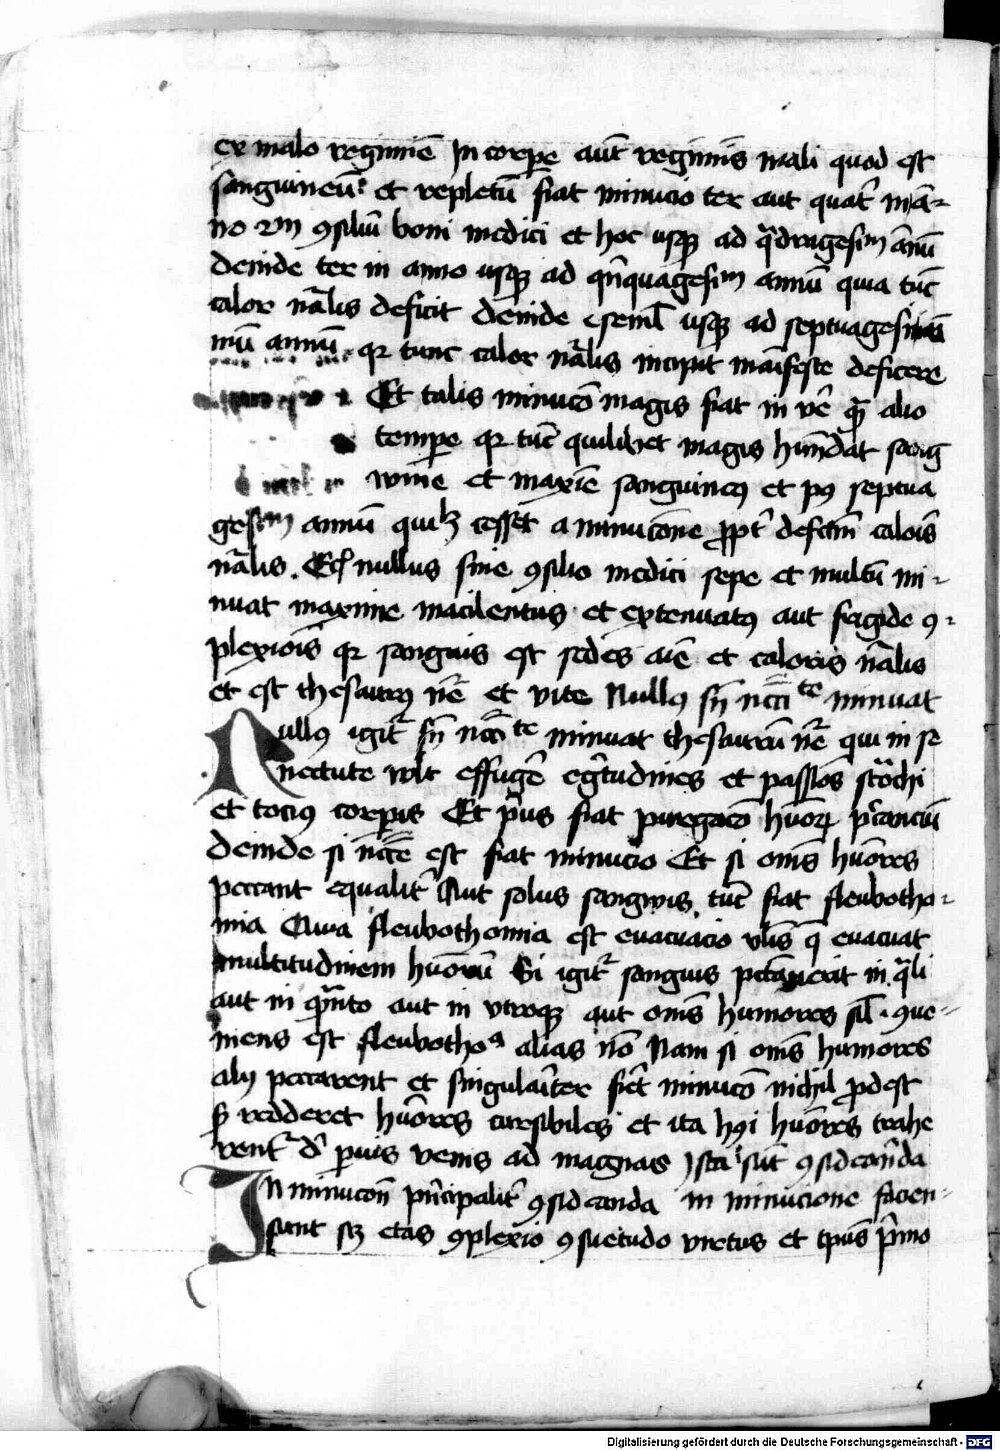 ex malo regimīe In corpe aūt regimīs mali quod est
sanguineū et repletū fiat minucio ter aut quat͛ in ā-
no 2m ꝯsiliū boni medici et hoc usqꝫ ad qͣdragesiᵐ ānū
deinde ter in anno usqꝫ ad qn̄quagesiᵐ annū quia tūc
calor nālis deficit deinde semł usqꝫ ad septuagesi
mū annū qr tunc calor nālis incipit maīfeste deficere
Et talis minucō magis fiat in vē qͣ alio
tempe qr tūc quilibet magis hūndat sang
wine et maxīe sanguineꝯ et pꝯ septua
gesiᵐ annū quilꝫ cessēt a minucōne ꝓpt͛ defcm̄ calorīs
nālis. nullus sine ꝯsilio medici sepe et multū mi-
nuat maxime macilentus et extenuatꝯ aut frigide ꝯ-
plexiōis qr sanguis est sedes aīe et caloris nālis
et est thesaurꝯ nr̄e et vite Nullꝯ sn̄ ncc̄iᵗᵉ minuat
Nullꝯ igit͛ sn̄ ncc̄ᵗᵉ minuat thesaurū nr̄e qui in se
nectute wlt effugē eg͛tudines et passiōs stōchi
et tociꝯ corpis Et p͛us fiat purgacō hūorꝝ pccanciū
deinde si ncc̄e est fiat minucio Et si om̄s hūores
peccant equalit͛ Aut solus sangwis tūc fiat fleubotho-
mia Quia fleubothomia est euacuacio vl̄is q̄ euacuat
multitudinem hūorū Si igit͛ sanguis pccauerit in qͣli
aut in qͣnto aut in vtroqꝫ aut om̄s humores sil̄ ꝯue-
niens est fleubothoᵃ alias nō Nam si om̄s humores
alij peccarent et singulariter fiēt minucō nichil ꝓdest
sꝫ redderet hūores cursibiles et ita hꝯi hūores trahe
rent͛ d͛ puis venis ad magnas Ista sūt ꝯsidcan̄da
In minucōn prīcipalit͛ ꝯsidcanda in minucione facien-
sunt scꝫ etas ꝯplexio ꝯsuetudo virtus et tp̄us p͛mo
Digitalisierung gefördert durch die Deutsche Forschungsgemeinschaft - DFG